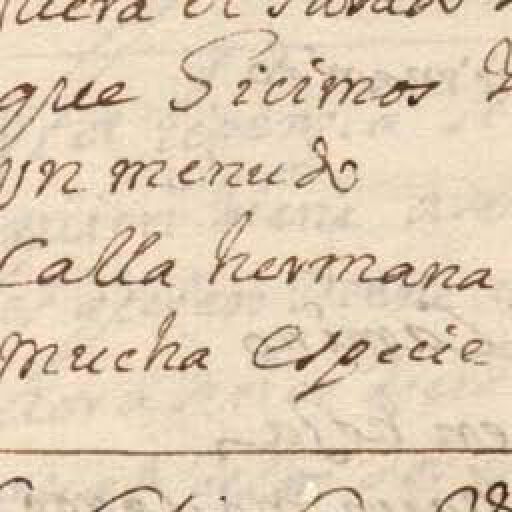 que Sicimos
un menudo
Calla hermana
mucha especie